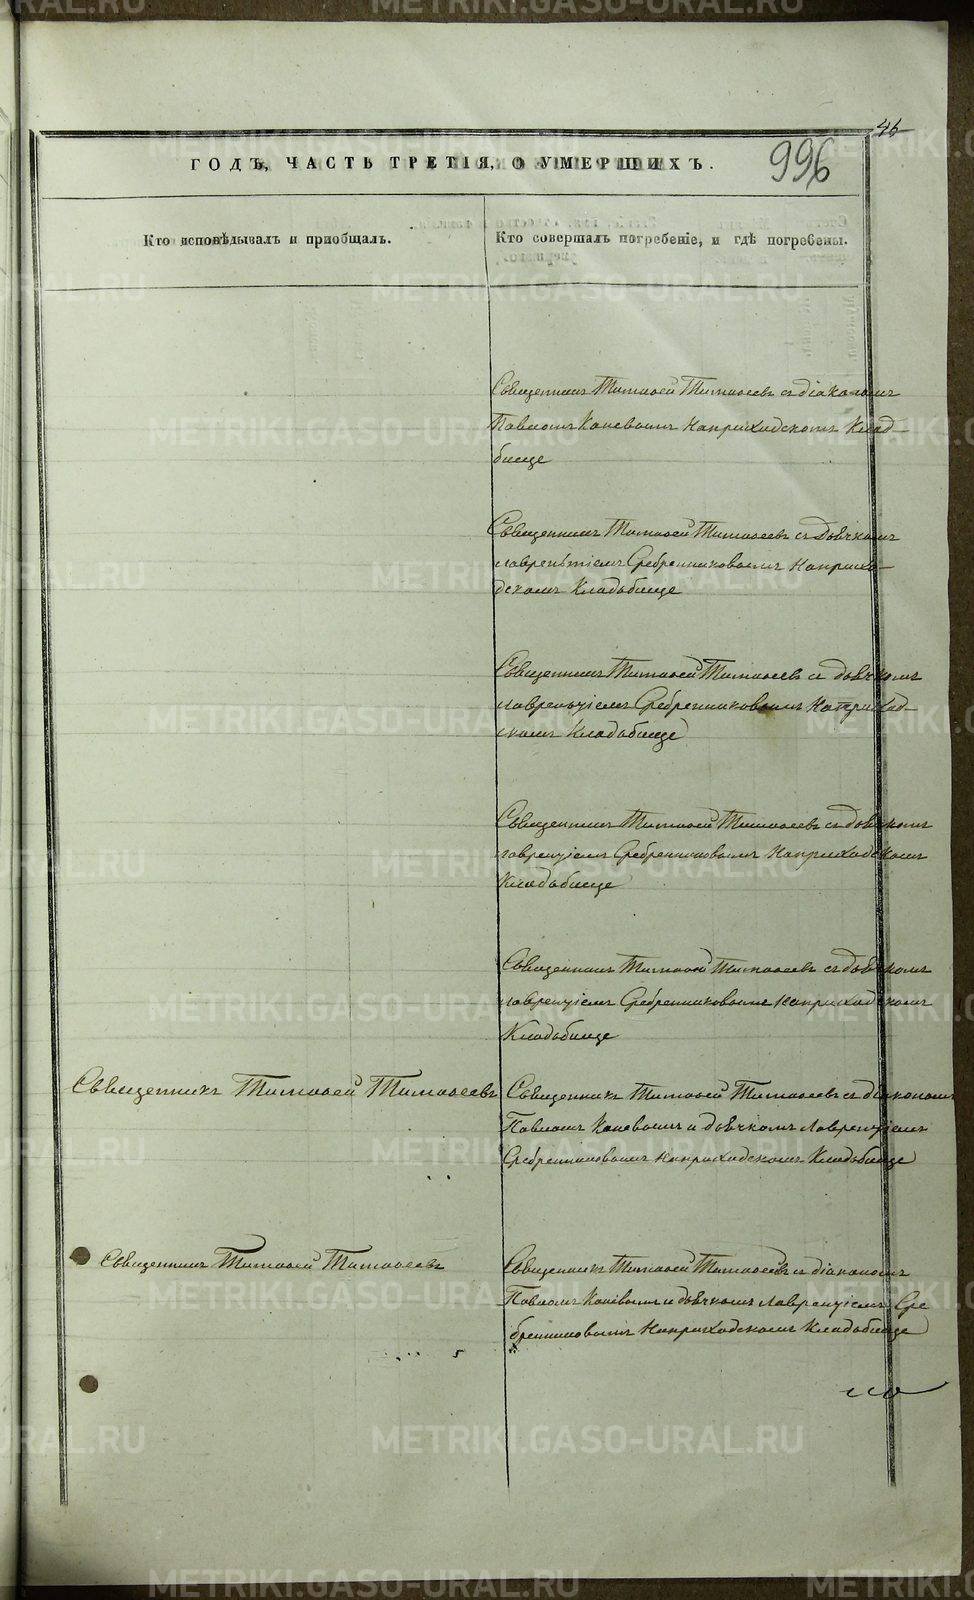 46
996
ГОДЪ, ЧАСТЬ ТРЕТІЯ, О УМЕРШИХЪ.
Кто исповѣдывалъ и приобщалъ.
Кто совершалъ погребеніе, и гдѣ погребены.
Священникъ Тимофей Тимофеевъ съ діакономъ
Павломъ Каневымъ на приходскомъ Клад
бище
Священникъ Тимофей Тимофеевъ съ дьячкомъ
Лаврентіемъ Сребренниковымъ на прихо-
дскомъ Кладьбище
Священникъ Тимофей Тимофеевъ съ дьячкомъ
Лаврентіемъ Сребренниковымъ на приход-
скомъ Кладьбище
Священникъ Тимофей Тимофеевъ съ дьячкомъ
Лаврентіемъ Сребренниковымъ на приходскомъ
Кладьбище
Священникъ Тимофей Тимофеевъ съ дьячкомъ
Лаврентіемъ Сребренниковымъ на приходскомъ
Кладьбище
Священникъ Тимофей Тимофеевъ
Священникъ Тимофей Тимофеевъ съ діакономъ
Павломъ Каневымъ и дьячкомъ Лаврентіемъ
Сребренниковымъ на приходскомъ Кладьбище
Священникъ Тимофей Тимофеевъ
Священникъ Тимофей Тимофеевъ съ діакономъ
Павломъ Каневымъ и дьячкомъ Лаврентіемъ Сре
бренниковымъ на приходскомъ Кладьбище
METRIKI.GASO-URAL.RU